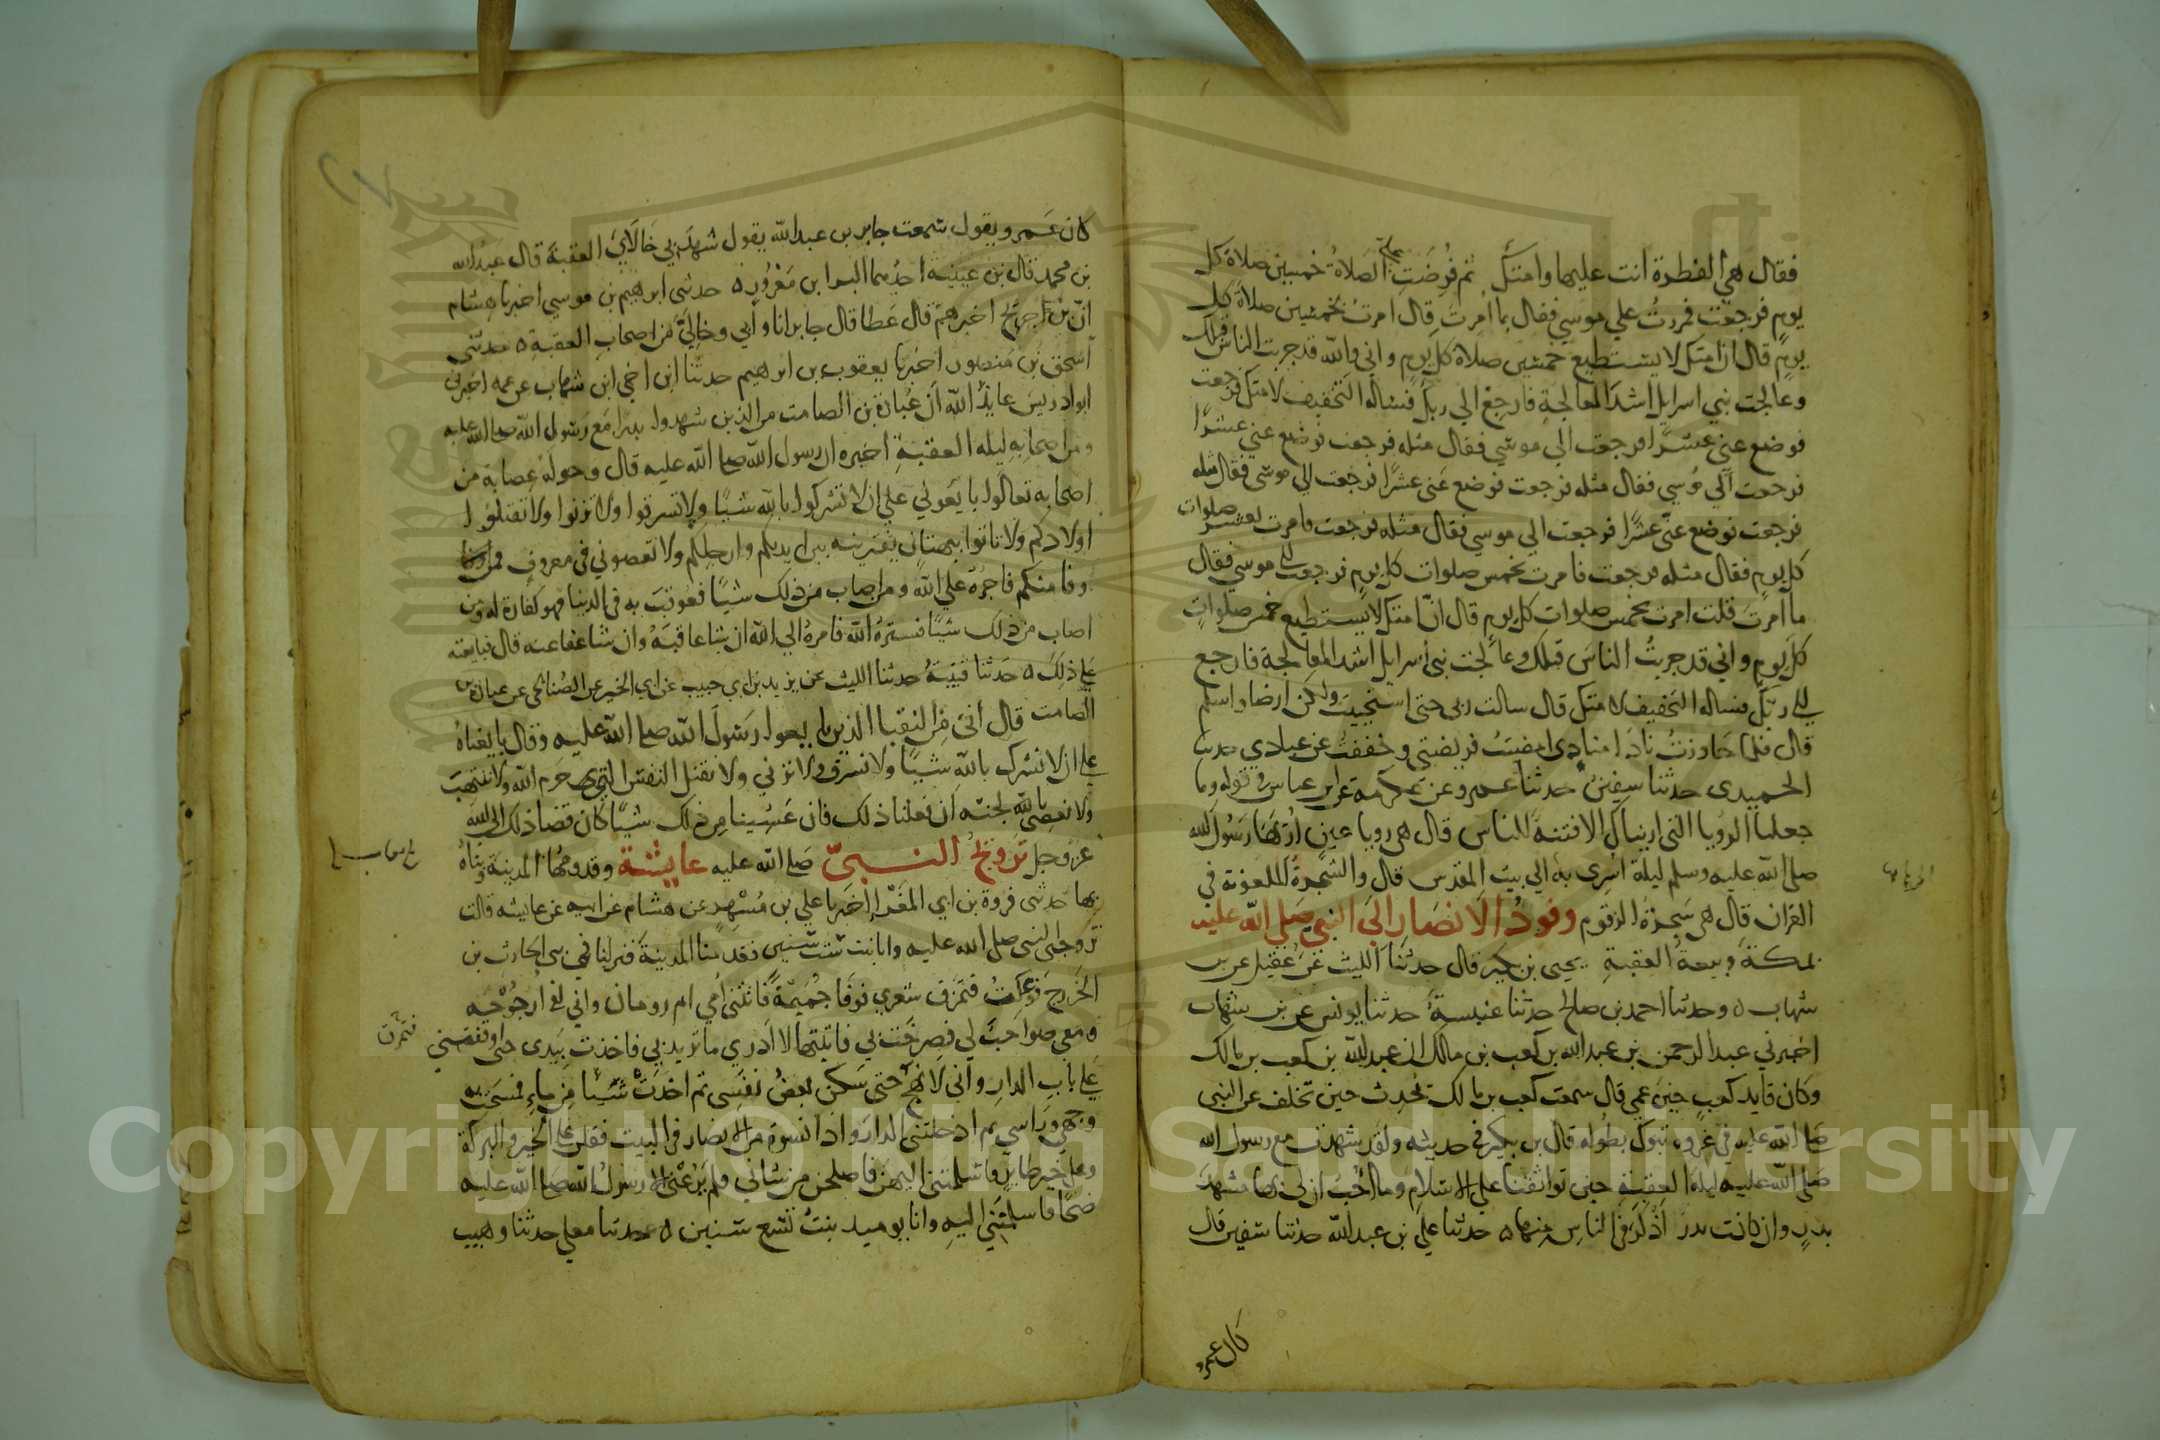 فقال هي الفطرة انت عليها وامتك ثم فرضت علي الصلاة خمسين صلاة كل
يوم فرجعت فمررت علي موسي فقال بما امرت قال امرت بخمسين صلاة كل
يوم قال ان امتك لا يستطيع خمسين صلاة كل يوم واني والله قد جربت الناس قبلك
وعالجت بني اسرايل اشد المعالجة فارجع الي ربك فسله التخفيف لامتك فرجعت
فوضع عني عشرا فرجعت الي موسي فقال مثله فرجعت فوضع عني عشرا
فرجعت الي موسي فقال مثله فرجعت فوضع عني عشرا فرجعت الي موسي فقال مثله
فرجعت فوضع عني عشرا فرجعت الي موسي فقال مثله فرجعت فامرت بعشر صلوات
كل يوم فقال مثله فرجعت فامرت بخمس صلوات كل يوم فرجعت الي موسي فقال
ما امرت قلت امرت بخمس صلوات كل يوم قال ان امتك لا يستطيع خمس صلوات
كل يوم واني قد جربت الناس قبلك وعالجت بني اسرايل اشد المعالجة فارجع
الي ربك فساله التخفيف لامتك قال سالت ربي حتي استحييت ولكن ارضا واسلم
قال فلما جاوزت نادا منادي امضيت فريضتي وخففت عن عبادي حدثنا
الحميدي حدثنا سفين حدثنا عمرو عن عكرمة عن ابن عباس في قوله وما
جعلنا الرويا التي اريناك الا فتنة للناس قال هي رويا عين اريها رسول الله
صلي الله عليه وسلم ليلة اسري به الي بيت المقدس قال والشجرة الملعونة في
القران قال هي شجرة الزقوم وفود الانصار الي النبي صلي الله عليه
بمكة وبيعة العقبة يحيي بن بكير قال حدثنا الليث عن عقيل عن بن
شهاب ه وحدثنا احمد بن صالح حدثنا عنبسة حدثنا يونس عن بن شهاب
اخبرني عبد الرحمن بن عبد الله بن كعب بن مالك ان عبد الله بن كعب بن مالك
وكان قايد كعب حين عمي قال سمعت كعب بن مالك يحدث حين تخلف عن النبي
صلي الله عليه في غزوه تبوك بطوله قال بن بكير في حديثه ولقد شهدت مع رسول الله
صلي الله عليه ليلة العقبة حين تواثقنا علي الاسلام وما احب ان لي بها مشهد
بدر وان كانت بدر اذكر في الناس منها ه حدثنا علي بن عبد الله حدثنا سفين قال
كان عمرو
كان عمرو يقول سمعت جابر بن عبد الله يقول شهد بي خالاي العقبة قال عبد الله
بن محمد قال بن عيينه احدهما البرا بن معرور ه حدثني ابرهيم بن موسي اخبرنا هشام
ان بن جريج اخبرهم قال عطا قال جابر انا وابي وخالي من اصحاب العقبة ه حدثني
اسحق بن منصور اخبرنا يعقوب بن ابرهيم حدثنا ابن اخي ابن شهاب عن عمه اخبرني
ابو ادريس عايذ الله ان عبادة بن الصامت من الذين شهدوا بدرا مع رسول الله صلي الله عليه
ومن اصحابه ليله العقبة اخبره ان رسول الله صلي الله عليه قال وحوله عصابة من
اصحابه تعالوا بايعوني علي ان لا تشركوا بالله شيا ولا تسرقوا ولا تزنوا ولا تقتلوا
اولادكم ولا تاتوا ببهتان يفترينه بين ايديكم وارجلكم ولا تعصوني في معروف فمن
وفا منكم فاجره علي الله ومن اصاب من ذلك شيا فعوقب به في الدنيا فهو كفارة له ومن
اصاب من ذلك شيا فستره الله فامره الي الله ان شا عاقبه وان شا عفا عنه قال فبايعته
علي ذلك ه حدثنا قتيبة حدثنا الليث عن يزيد بن ابي حبيب عن ابي الخير عن الصنابحي عن عبادة بن
الصامت قال اني من النقبا الذين بايعوا رسول الله صلي الله عليه وقال بايعناه
علي ان لا نشرك بالله شيا ولا نسرق ولا نزني ولا نقتل النفس التي حرم الله ولا ننتهب
ولا نعصي بالجنه ان فعلنا ذلك فان غشينا من ذلك شيا كان قضا ذلك الي الله
عز وجل تزويج النبي صلي الله عليه عايشة وقدومها المدينة وبناه
بها حدثني فروة بن ابي المغرا اخبرنا علي بن مسهر عن هشام عن ابيه عن عايشه قالت
تزوجني النبي صلي الله عليه وانا بنت ست سنين فقدمنا المدينة فنزلنا في بني الحارث بن
الخزرج فوعكت فتمزق شعري فوفا جميمة فاتتني امي ام رومان واني لفي ارجوحه
ومعي صواحب لي فصرخت بي فاتيتها لا ادري ما تريد بي فاخذت بيدي حتي اوقفتني
علي باب الدار واني لانهج حتي سكن بعض نفسي ثم اخذت شيا من ماء فمسحت به
وجهي وراسي ثم ادخلتني الدار واذا نسوة من الانصار في البيت فقلن علي الخير والبركة
وعلي خير طاير فاسلمتني اليهن فاصلحن من شاني فلم يرعني الا رسول الله صلي الله عليه
ضحا فاسلمنني اليه وانا يوميد بنت تسع سنين ه حدثنا معلي حدثنا وهيب
Copyright © King Saud University